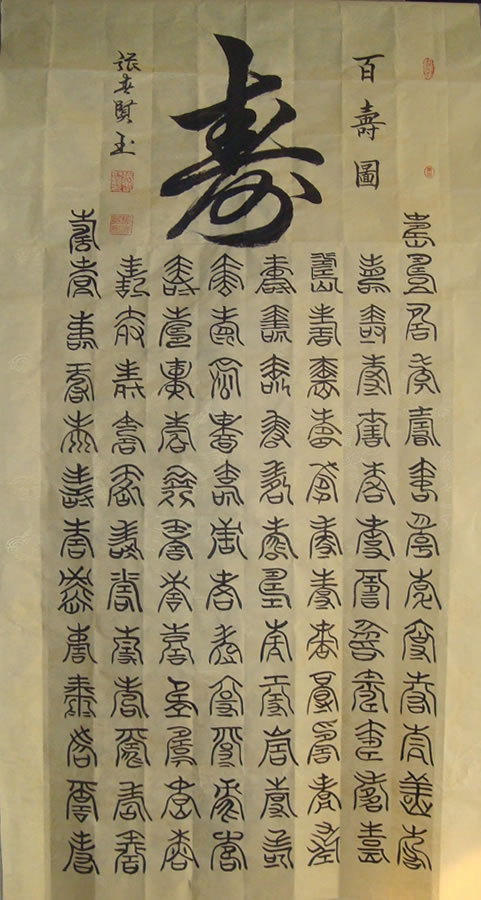 百壽圖
寿
壽壽壽壽壽壽壽壽壽壽壽壽壽
壽壽壽壽壽壽壽壽壽壽壽壽
壽壽壽壽壽壽壽壽壽壽壽壽
壽壽壽壽壽壽壽壽壽壽壽壽
壽壽壽壽壽壽壽壽壽壽壽壽
壽壽壽壽壽壽壽壽壽壽壽壽
壽壽壽壽壽壽壽壽壽壽壽壽
壽壽壽壽壽壽壽壽壽壽壽壽壽